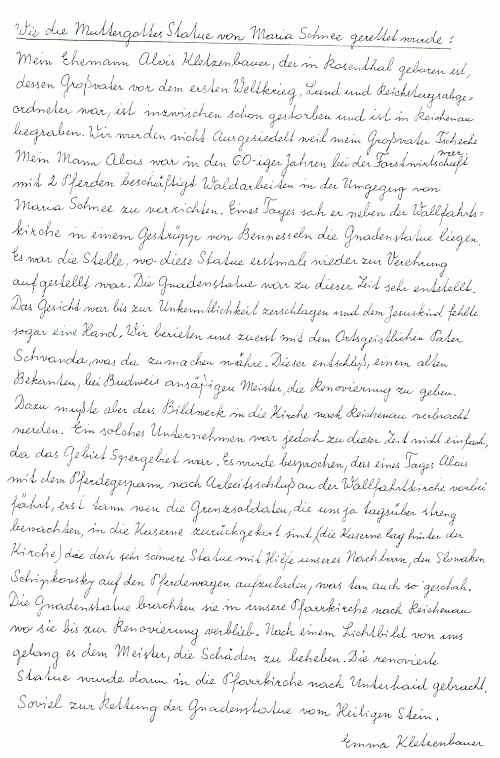 Wie die Muttergottes Statue von Maria Schnee gerettet wurde:
Mein Ehemann Alois Kletzenbauer, der in Rosenthal geboren ist,
dessen Großvater vor dem ersten Weltkrieg, Land und Reichstagsabge=
ordneter war, ist inzwischen schon gestorben und ist in Reichenau
begraben. Wir wurden nicht Ausgesiedelt weil mein Großvater Tscheche war
Mein Mann Alois war in den 60-iger Jahren bei der Forstwirtschaft
mit 2 Pferden beschäftigt Waldarbeiten in der Umgegung von
Maria Schnee zu verrichten. Eines Tages sah er neben der Wallfahrts=
kirche in einem Gestrüpp von Bennesseln die Gnadenstatue liegen.
Es war die Stelle, wo diese Statue erstmals wieder zur Verehrung
aufgestellt war. Die Gnadenstatue war zu dieser Zeit sehr entstellt.
Das Gesicht war bis zur Unkenntlichkeit zerschlagen und dem Jesuskind fehlte
sogar eine Hand. Wir berieten uns zuerst mit dem Ortsgeistlichen Pater
Schvanda, was da zumachen währe. Dieser entschloß, einem alten
Bekanten, bei Budweis ansäßigen Meister, die Renovierung zu geben.
Dazu mußte aber das Bildwerk in die Kirche nach Reichenau verbracht
werden. Ein solches Unternehmen war jedoch zu dieser Zeit nicht einfach,
da das Gebiet Spergebiet war. Es wurde besprochen, das eines Tages Alois
mit dem Pferdegespann nach Arbeitsschluß an der Wallfahrtskirche vorbei
fährt, erst dann wen die Grenzsoldaten, die uns ja tagsüber streng
bewachten, in die Kaserne zurückgekert sind (die Kaserne lag hinter der
Kirche) die doh sehr schwere Statue mit Hilfe unseres Nachbarn, den Slowaken
Schipkovsky auf den Pferdewagen aufzuladen, was dan auch so geschah.
Die Gnadenstatue brachten sie in unsere Pfarrkirche nach Reichenau
wo sie bis zur Renovierung verblieb. Nach einem Lichtbild von uns
gelang es dem Meister, die Schäden zu beheben. Die renovierte
Statue wurde dann in die Pfarrkirche nach Unterhaid gebracht.
Soviel zur Rettung der Gnadenstatue vom Heiligen Stein.
Emma Kletzenbauer